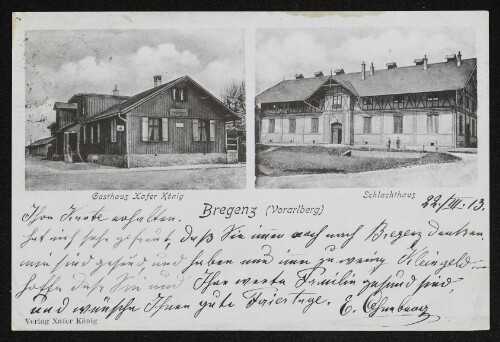 Gasthaus Xafer König
Schlachthaus
Bregenz (Vorarlberg)
22./III. 13.
Ihre Karte erhalten.
hat mich sehr gefreut, daß Sie immer noch nach Bregenz denken.
wir sind gesund und haben nur zu wenig Kleingeld
hoffe daß Sie und Ihre werte Familie gesund sind,
und wünsche Ihnen gute Feiertage. E.
Verlag Xafer König